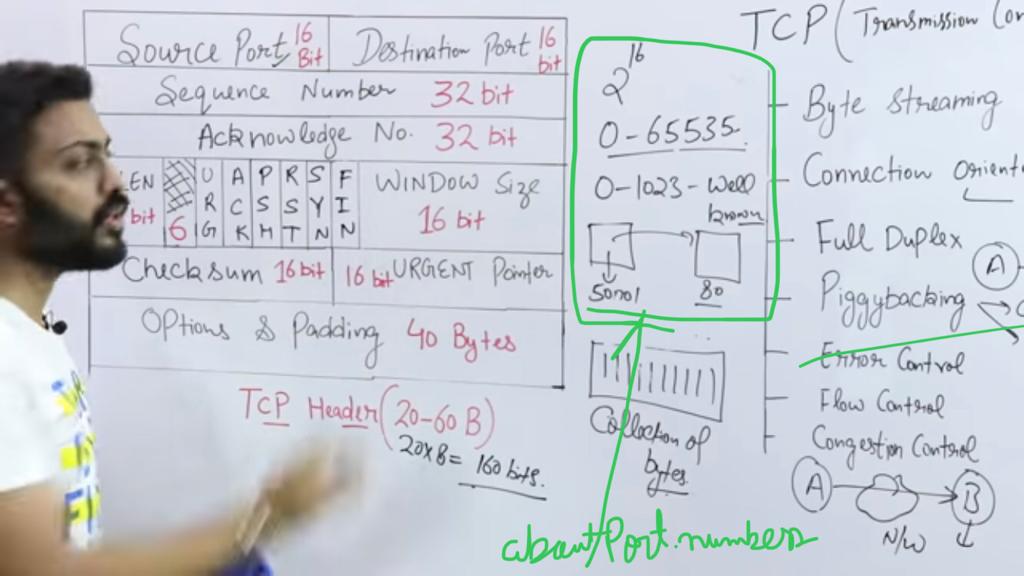 Source Port 16 Bit
Destination Port 16 bit
Sequence Number 32 bit
Acknowledge No. 32 bit
LEN bit
6
URG ACK PSH RST SYN FIN
WINDOW Size 16 bit
Checksum 16 bit
16 bit URGENT Pointer
Options & Padding 40 Bytes
TCP Header (20-60 B)
20x8 = 160 bits.
2^16
0-65535.
0-1023 - Well
known
50001 80
Collection of
bytes
about Port numbers
TCP (Transmission
Byte Streaming
Connection
Full Duplex
A
Piggybacking
Error Control
Flow Control
Congestion Control
A B
N/W